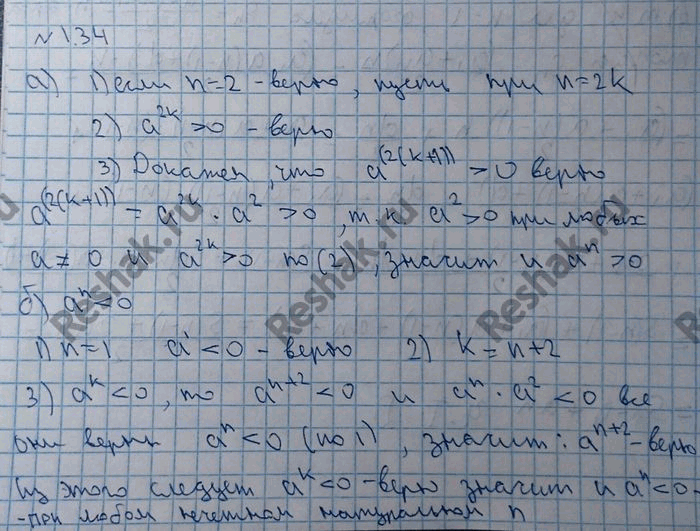 №1.34
а) 1) если n=2 - верно, пусть при n=2k
2) a^{2k} >0 - верно
3) Докажем, что a^{(2(k+1))} >0 верно
a^{(2(k+1))} = a^{2k} · a^2 >0, т.к. a^2 >0 при любых
a≠0 и a^{2k} >0 по (2), значит и a^n >0
б) a^n <0
1) n=1 a^1 <0 - верно 2) k = n+2
3) a^k <0, то a^{n+2} <0 и a^n · a^2 <0 все
они верны a^n <0 (по 1), значит: a^{n+2} - верно
из этого следует a^k <0 - верно значит и a^n <0 -
- при любом нечетном натуральном n
Reshak.ru
Reshak.ru
Reshak.ru
Reshak.ru